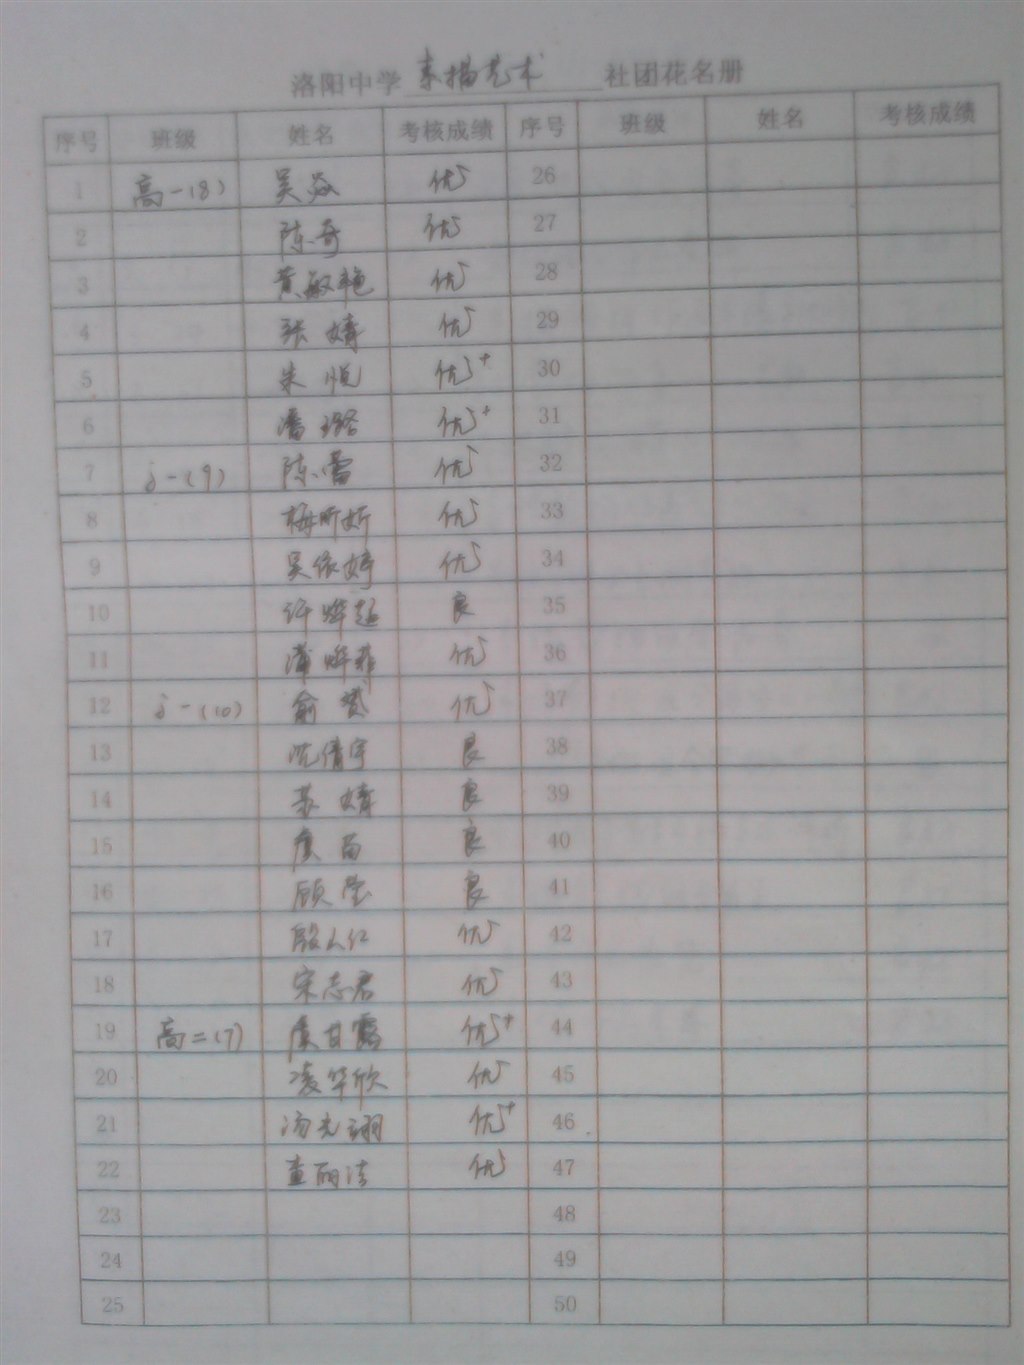 洛阳中学 素描艺术 社团花名册
序号 班级 姓名 考核成绩 序号 班级 姓名 考核成绩
1 高一(8) 吴 优 26
2 陈奇 优 27
3 黄敏艳 优 28
4 张婧 优 29
5 朱悦 优+ 30
6 潘璐 优+ 31
7 高一(9) 陈蕾 优 32
8 梅昕妍 优 33
9 吴依婷 优 34
10 许晔超 良 35
11 蒲烨菲 优 36
12 高一(10) 俞 优 37
13 沈倩宇 良 38
14 苏婧 良 39
15 虞苗 良 40
16 顾莹 良 41
17 殷人仁 优 42
18 宋志君 优 43
19 高二(7) 虞甘露 优+ 44
20 凌华欣 优 45
21 汤光翊 优+ 46
22 童丽洁 优 47
23 48
24 49
25 50